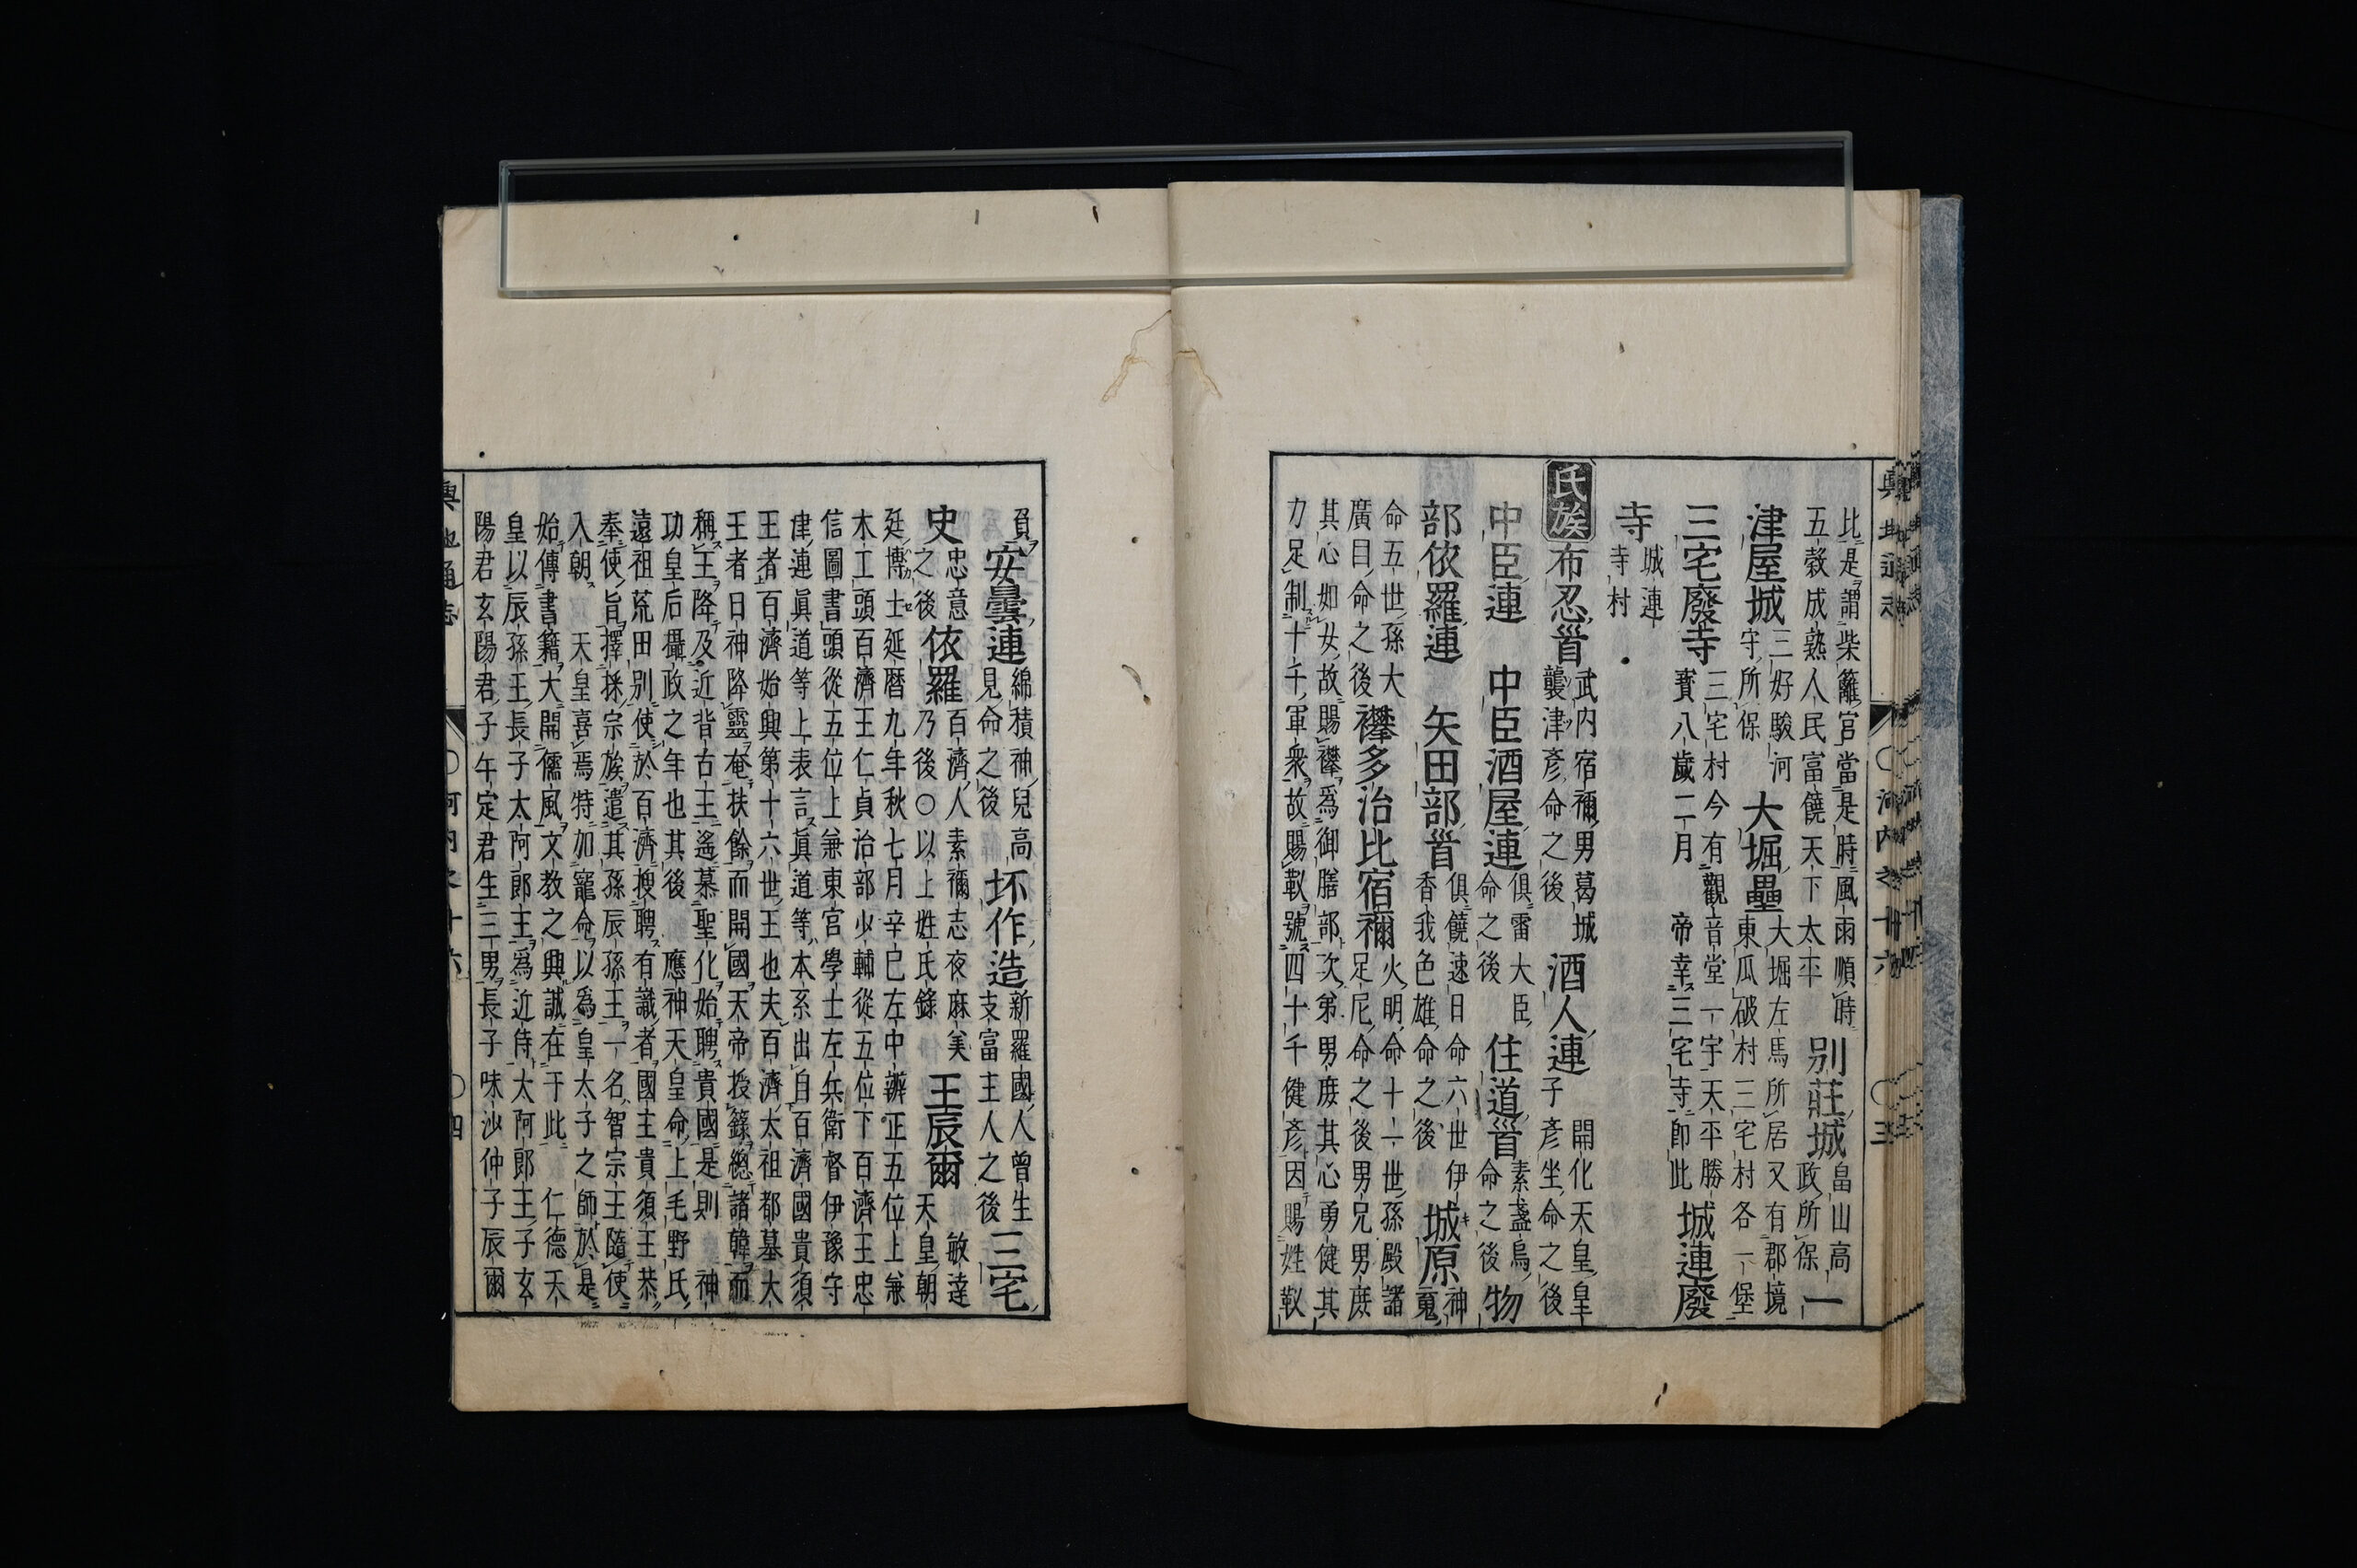 比是謂柴籬宮當是時風雨順時
五穀成熟人民富饒天下太平 別莊城 畠山高政所保 一
津屋城 三好駿河守所保 大堀壘 大堀左馬所居又有郡境東瓜破村三宅村各一堡
三宅廢寺 三宅村今有觀音堂一宇天平勝寶八歲二月 帝幸三宅寺即此 城連廢
寺 城連寺村
氏族 布忍首 武内宿禰男葛城襲津彥命之後 酒人連 開化天皇皇子彥坐命之後
中臣連 中臣酒屋連 俱雷大臣命之後 住道首 素盞烏命之後 物
部依羅連 矢田部首 俱饒速日命六世伊香我色雄命之後 城原 神䰟
命五世孫大廣目命之後 襷多治比宿禰 火明命十一世孫殿諸足尼命之後男兄男庶
其心如女故賜襷為御膳部次第男庶其心勇健其
力足制十千軍衆故賜靫號四十千健彥因賜姓靫
負 安曇連 綿積神兒高見命之後 坏作造 新羅國人曾生支富主人之後 三宅
史 忠意之後 依羅 百濟人素禰志夜麻美乃後○以上姓氏錄 王辰爾 敏達天皇朝
廷博士延曆九年秋七月辛巳左中辨正五位上兼
木工頭百濟王仁貞治部少輔從五位下百濟王忠
信圖書頭從五位上兼東宮學士左兵衛督伊豫守
津連眞道等上表言眞道等本系出自百濟國貴須
王者百濟始興第十六世王也夫百濟太祖都慕大
王者日神降靈奄扶餘而開國天帝授籙總諸韓而
稱王降及近背古王遙慕聖化始聘貴國是則 神
功皇后攝政之年也其後 應神天皇命上毛野氏
遠祖荒田別使於百濟搜聘有識者國主貴須王恭
奉使旨擇採宗族遣其孫辰孫王一名智宗王隨使
入朝 天皇喜焉特加寵命以為皇太子之師於是
始傳書籍大開儒風文教之興誠在于此 仁德天
皇以辰孫王長子太阿郎王為近侍太阿郎王子玄
陽君玄陽君子午定君生三男長子味沙仲子辰爾